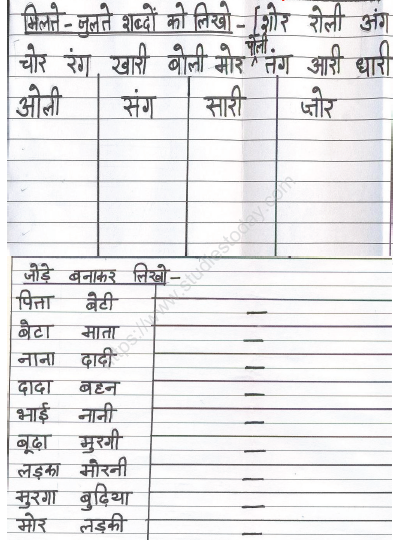 मिलते - जुलते शब्दों को लिखो - [शोर रोली अंग
चोर रंग खारी बोली मोर पोली तंग आरी धारी
ओली संग सारी ज़ोर
जोड़े बनाकर लिखो -
पिता बेटी _
बेटा माता _
नाना दादी _
दादा बहन _
भाई नानी _
बूढ़ा मुरगी _
लड़का मोरनी _
मुरगा बुढ़िया _
मोर लड़की _
https://www.studiestoday.com